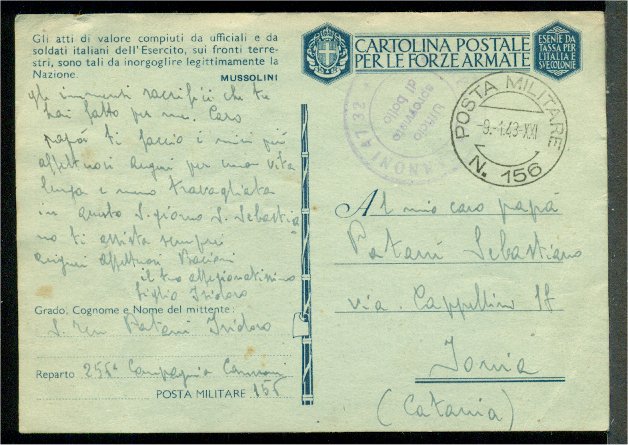 Gli atti di valore compiuti da ufficiali e da
soldati italiani dell'Esercito, sui fronti terre-
stri, sono tali da inorgoglire legittimamente la
Nazione.
MUSSOLINI
gli immensi sacrifici che tu
hai fatto per me. Caro
papà ti faccio i miei più
affettuosi auguri per una vita
lunga e meno travagliata
in questo S. giorno S. Sebastia
no ti assista sempre
auguri affettuosi Bacioni
il tuo affezionatissimo
figlio Isidoro
Grado, Cognome e Nome del mittente:
S. Ten Patanì Isidoro
Reparto 256ª Compagnia Cannoni
POSTA MILITARE 156
CARTOLINA POSTALE
PER LE FORZE ARMATE
ESENTE DA
TASSA PER
L'ITALIA E
SVE COLONIE
47/32
Ufficio
sprovvisto
di bollo
POSTA MILITARE
9.-1.43-XXI
N. 156
Al mio caro papà
Patanì Sebastiano
via Cappellino 17
Jonia
(Catania)